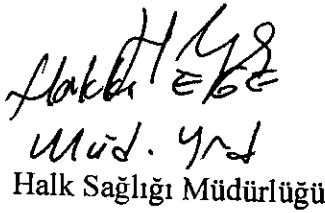 Hakkı EGE
Müd. Yrd
Halk Sağlığı Müdürlüğü